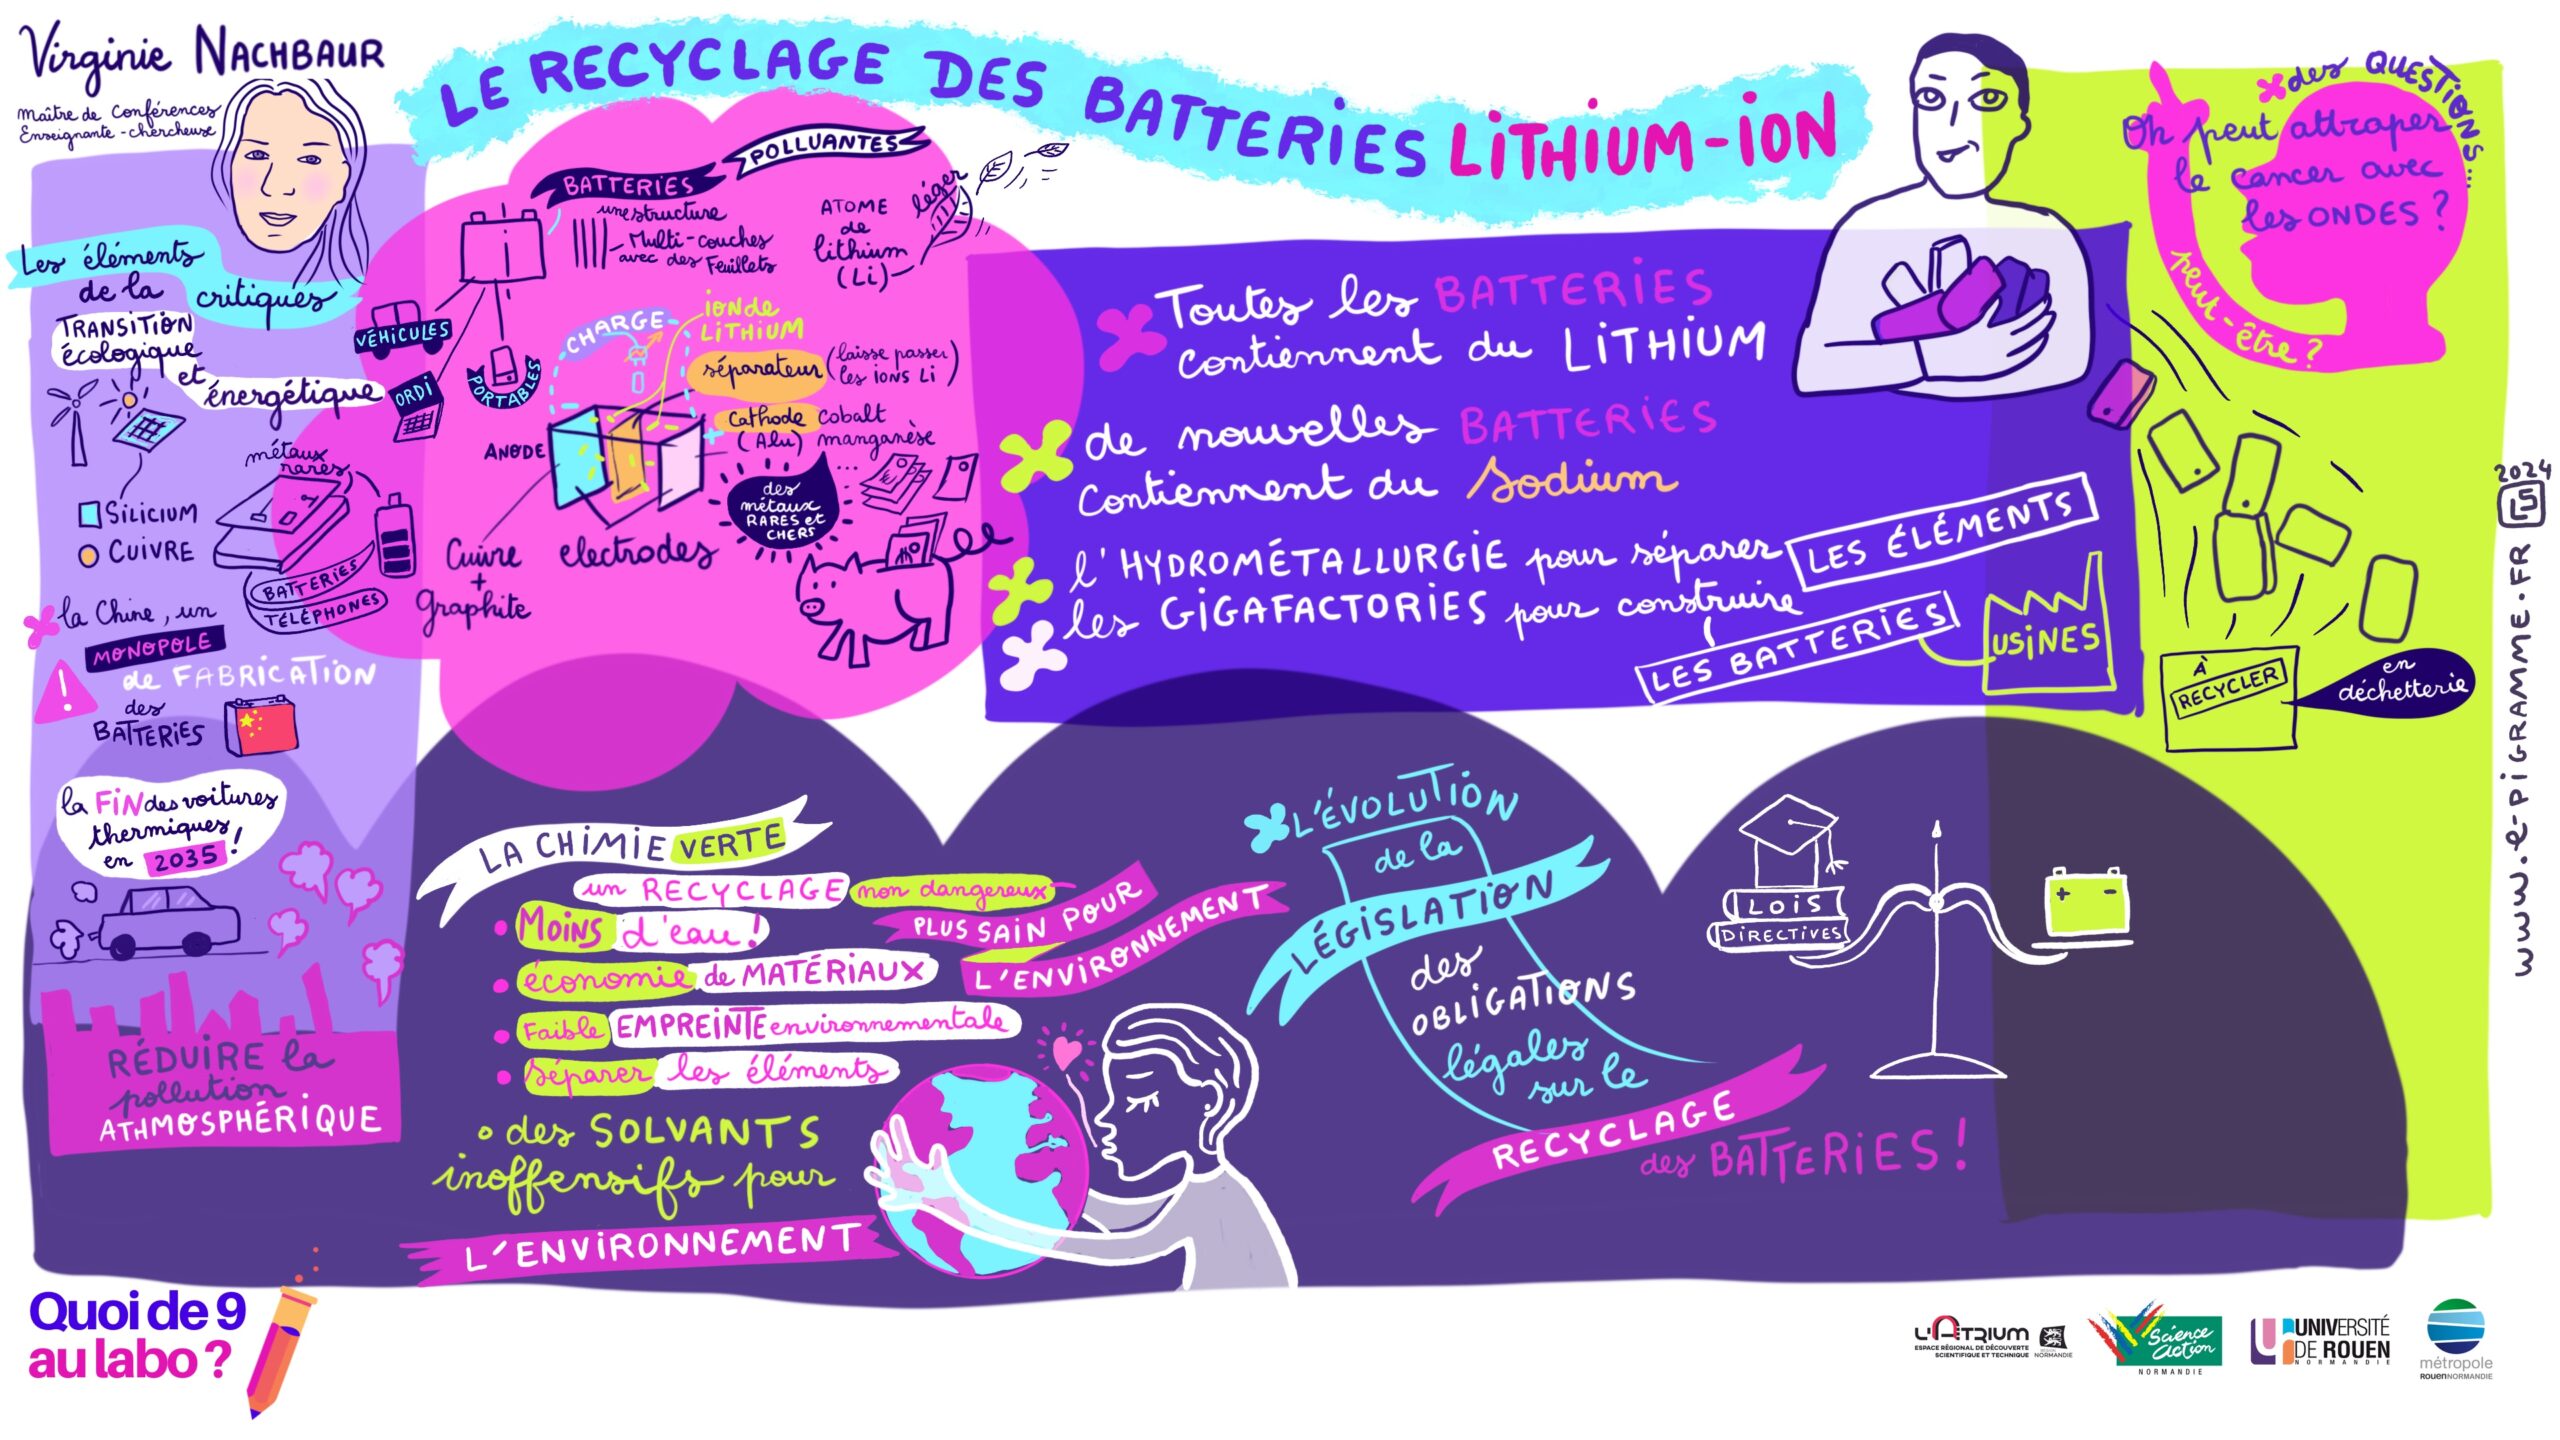 Virginie NACHBAUR
Maître de Conférences
Enseignante-chercheuse
LE RECYCLAGE DES BATTERIES LITHIUM-ION
Les éléments
critiques
de la
TRANSITION
écologique
et
énergétique
SILICIUM
CUIVRE
métaux
rares
BATTERIES
TÉLÉPHONES
la Chine, un
MONOPOLE
de FABRICATION
des
BATTERIES
la FIN des voitures
thermiques
en 2035 !
RÉDUIRE la
pollution
ATHMOSPHÉRIQUE
BATTERIES
POLLUANTES
une structure
Multi-couches
avec des Feuillets
ATOME
de
lithium
(Li)
léger
VÉHICULES
ORDI
PORTABLES
CHARGE
ion de
LITHIUM
séparateur (laisse passer
les ions Li)
Cathode cobalt
(Alu) manganèse
...
ANODE
Cuivre
+
graphite
electrodes
des
métaux
RARES et
CHERS
Toutes les BATTERIES
contiennent du LITHIUM
de nouvelles BATTERIES
Contiennent du Sodium
l'HYDROMÉTALLURGIE pour séparer LES ÉLÉMENTS
les GIGAFACTORIES pour construire
LES BATTERIES
USINES
des QUESTIONS...
On peut attraper
le cancer avec
les ONDES ?
peut-être ?
À
RECYCLER
en
déchetterie
2024
www.e-PIGRAMME.FR
LA CHIMIE VERTE
un RECYCLAGE non dangereux
PLUS SAIN POUR
L'ENVIRONNEMENT
• Moins d'eau !
• économie de MATÉRIAUX
• Faible EMPREINTE environnementale
• Séparer les éléments
• des SOLVANTS
inoffensifs pour
L'ENVIRONNEMENT
L'ÉVOLUTION
de la
LÉGISLATION
des
OBLIGATIONS
légales
sur le
RECYCLAGE
des BATTERIES !
LOIS
DIRECTIVES
+ -
Quoi de 9
au labo ?
L'ATRIUM
ESPACE RÉGIONAL DE DÉCOUVERTE
SCIENTIFIQUE ET TECHNIQUE
NORMANDIE
Science
Action
NORMANDIE
UNIVERSITÉ
DE ROUEN
NORMANDIE
métropole
ROUENNORMANDIE